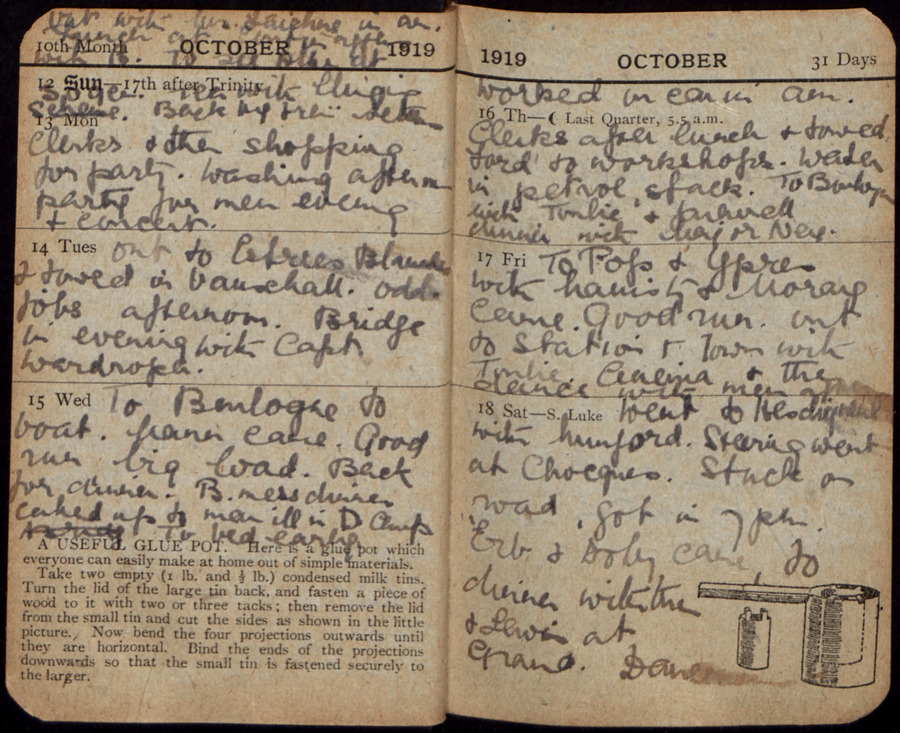 out with in am.
10th Month OCTOBER 1919
with B. To
12 Sun—17th after Trinity
with
Scheme. Back by
13 Mon
Clerks & then shopping
for party. Washing afternoon
party for men evening
& concert.
14 Tues out to Estrees Blanche
& towed in Vauxhall. Odd
jobs afternoon. Bridge
in evening with Capt.
Wardroper.
15 Wed To Boulogne to
boat. came. Good
run big load. Back
for dinner. B. mess dinner
called up to man ill in D Camp
To bed early
A USEFUL GLUE POT. Here is a glue pot which
everyone can easily make at home out of simple materials.
Take two empty (1 lb. and ½ lb.) condensed milk tins.
Turn the lid of the large tin back, and fasten a piece of
wood to it with two or three tacks; then remove the lid
from the small tin and cut the sides as shown in the little
picture. Now bend the four projections outwards until
they are horizontal. Bind the ends of the projections
downwards so that the small tin is fastened securely to
the larger.
1919 OCTOBER 31 Days
worked on car in am.
16 Th—☾ Last Quarter, 5.5 a.m.
Clerks after lunch & towed
Ford to workshops. Water
in petrol, stuck. To Boulogne
with &
dinner with Major
17 Fri To Pops & Ypres
with &
came. Good run. out
to Station & Town with
Cinema & then
dance with men
18 Sat—S. Luke Went to
with Steering went
at Chocques. Stuck on
road, got in 7 pm.
Erb & came, to
dinner with the
& Lewis at
Grand. Dance